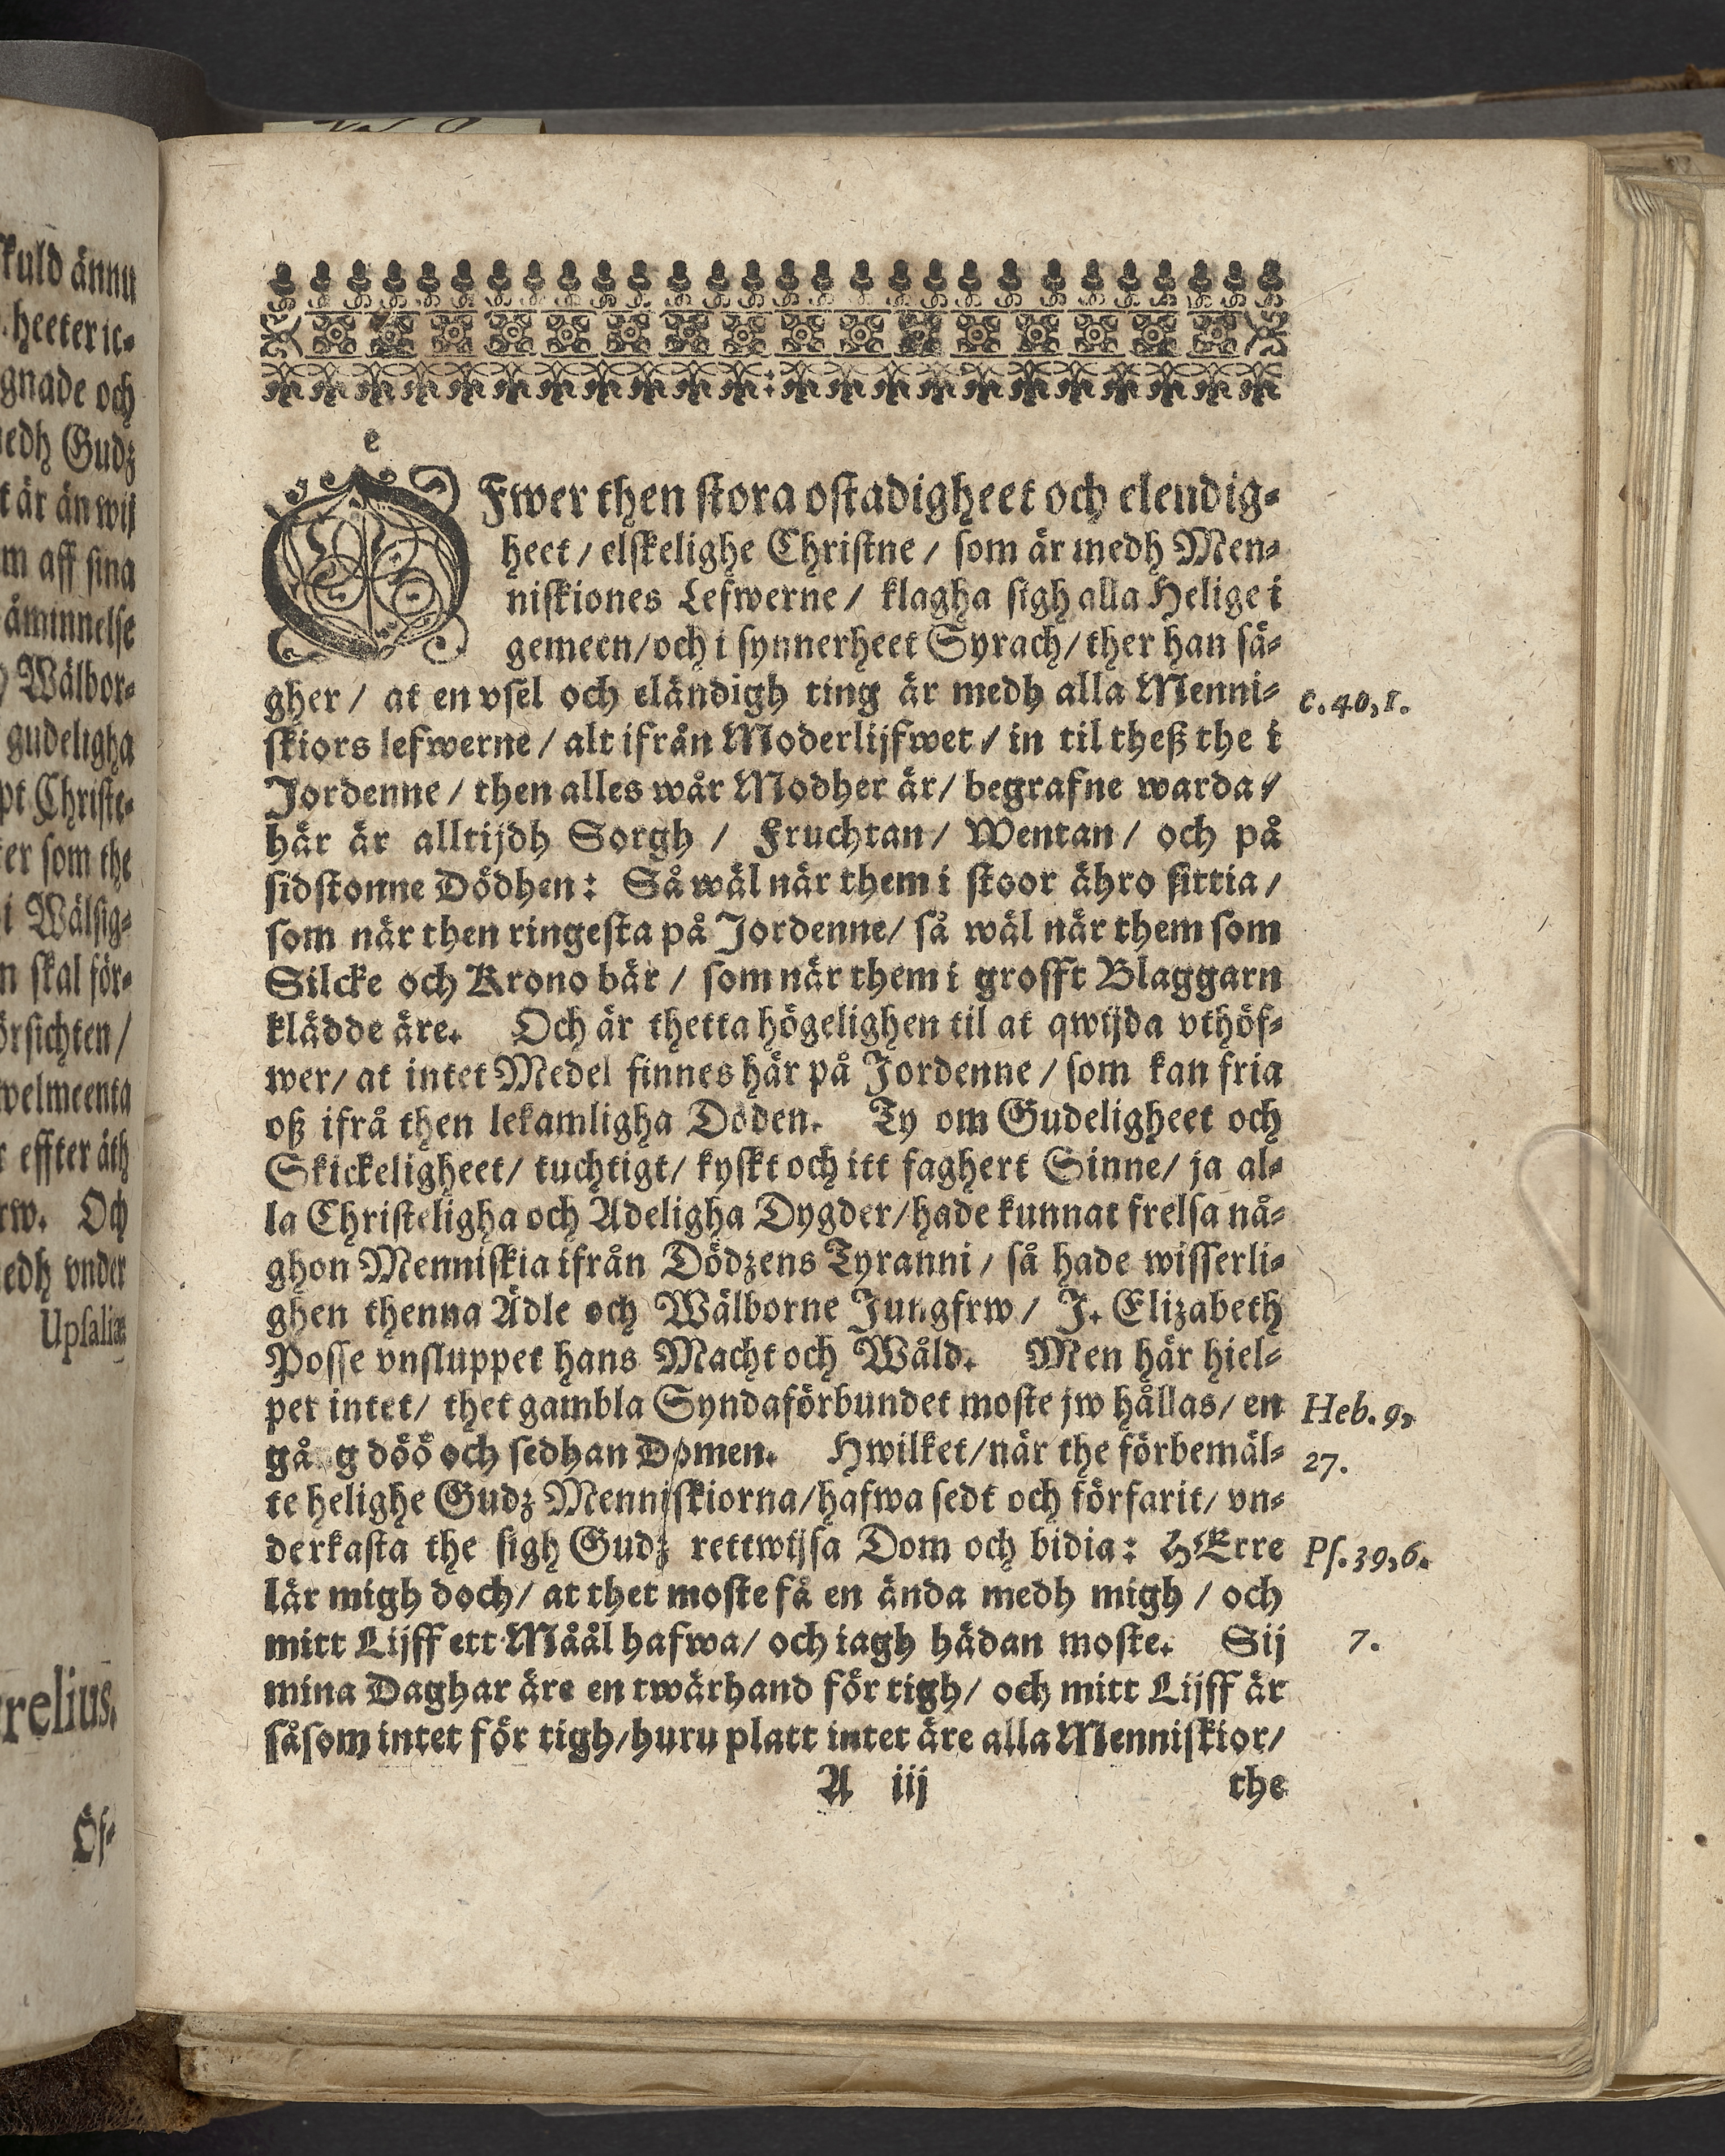 kuld ännu
heeter it-
gnade och
edh Gudz
är än wij
m aff sina
åminnelse
Wälbor-
gudeligha
pt Christe-
er som the
i Wälsig-
n skal för-
örsichten/
welmeenta
effter äth
rw. Och
edh vnder
Upsaliæ
relius.
Öf-
Öfwer then stora ostadigheet och elendig-
heet / elskelighe Christne / som är medh Men-
niskiones Lefwerne / klagha sigh alla Helige i
gemeen/och i synnerheet Syrach/ ther han sä-
gher / at en vsel och eländigh ting är medh alla Menni- c.40,1.
skiors lefwerne / alt ifrån Moderlijfwet / in til theß the i
Jordenne / then alles wår Modher är/ begrafne warda /
här är alltijdh Sorgh / Fruchtan/ Wentan / och på
sidstonne Dödhen: Så wäl när them i stoor ähro sittia /
som när then ringesta på Jordenne/ så wäl när them som
Silcke och Krono bär / som när them i grofft Blaggarn
klädde äre. Och är thetta högelighen til at qwijda vthöf-
wer/ at intet Medel finnes här på Jordenne / som kan fria
oß ifrå then lekamligha Döden. Ty om Gudeligheet och
Skickeligheet/ tuchtigt/ kyskt och itt faghert Sinne/ ja al-
la Christeligha och Adeligha Dygder/hade kunnat frelsa nå-
ghon Menniskia ifrån Dödzens Tyranni / så hade wisserli-
ghen thenna Ädle och Wälborne Jungfrw / J. Elizabeth
Posse vnsluppet hans Macht och Wåld. Men här hiel-
per intet/ thet gambla Syndaförbundet moste jw hållas/ en Heb. 9,
gå g döö och sedhan Domen. Hwilket/när the förbemäl- 27.
te helighe Gudz Menniskiorna/hafwa sedt och förfarit/ vn-
derkasta the sigh Gudz rettwijsa Dom och bidia: HErre Ps. 39,6.
lär migh doch/ at thet moste få en ända medh migh / och
mitt Lijff ett Måål hafwa/ och iagh hädan moste. Sij 7.
mina Daghar äre en twärhand för tigh/ och mitt Lijff är
såsom intet för tigh/huru platt intet äre alla Menniskior/
A iij the